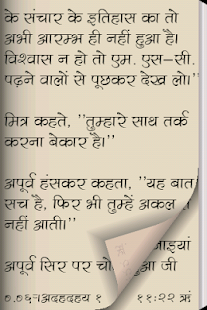 के संचार के इतिहास का तो
अभी आरम्भ ही नहीं हुआ है।
विश्वास न हो तो एम. एस-सी.
पढ़ने वालों से पूछकर देख लो।''
मित्र कहते, ''तुम्हारे साथ तर्क
करना बेकार है।''
अपूर्व हंसकर कहता, ''यह बात
सच है, फिर भी तुम्हें अकल
नहीं आती।''
अपूर्व सिर पर
जी
११:२२